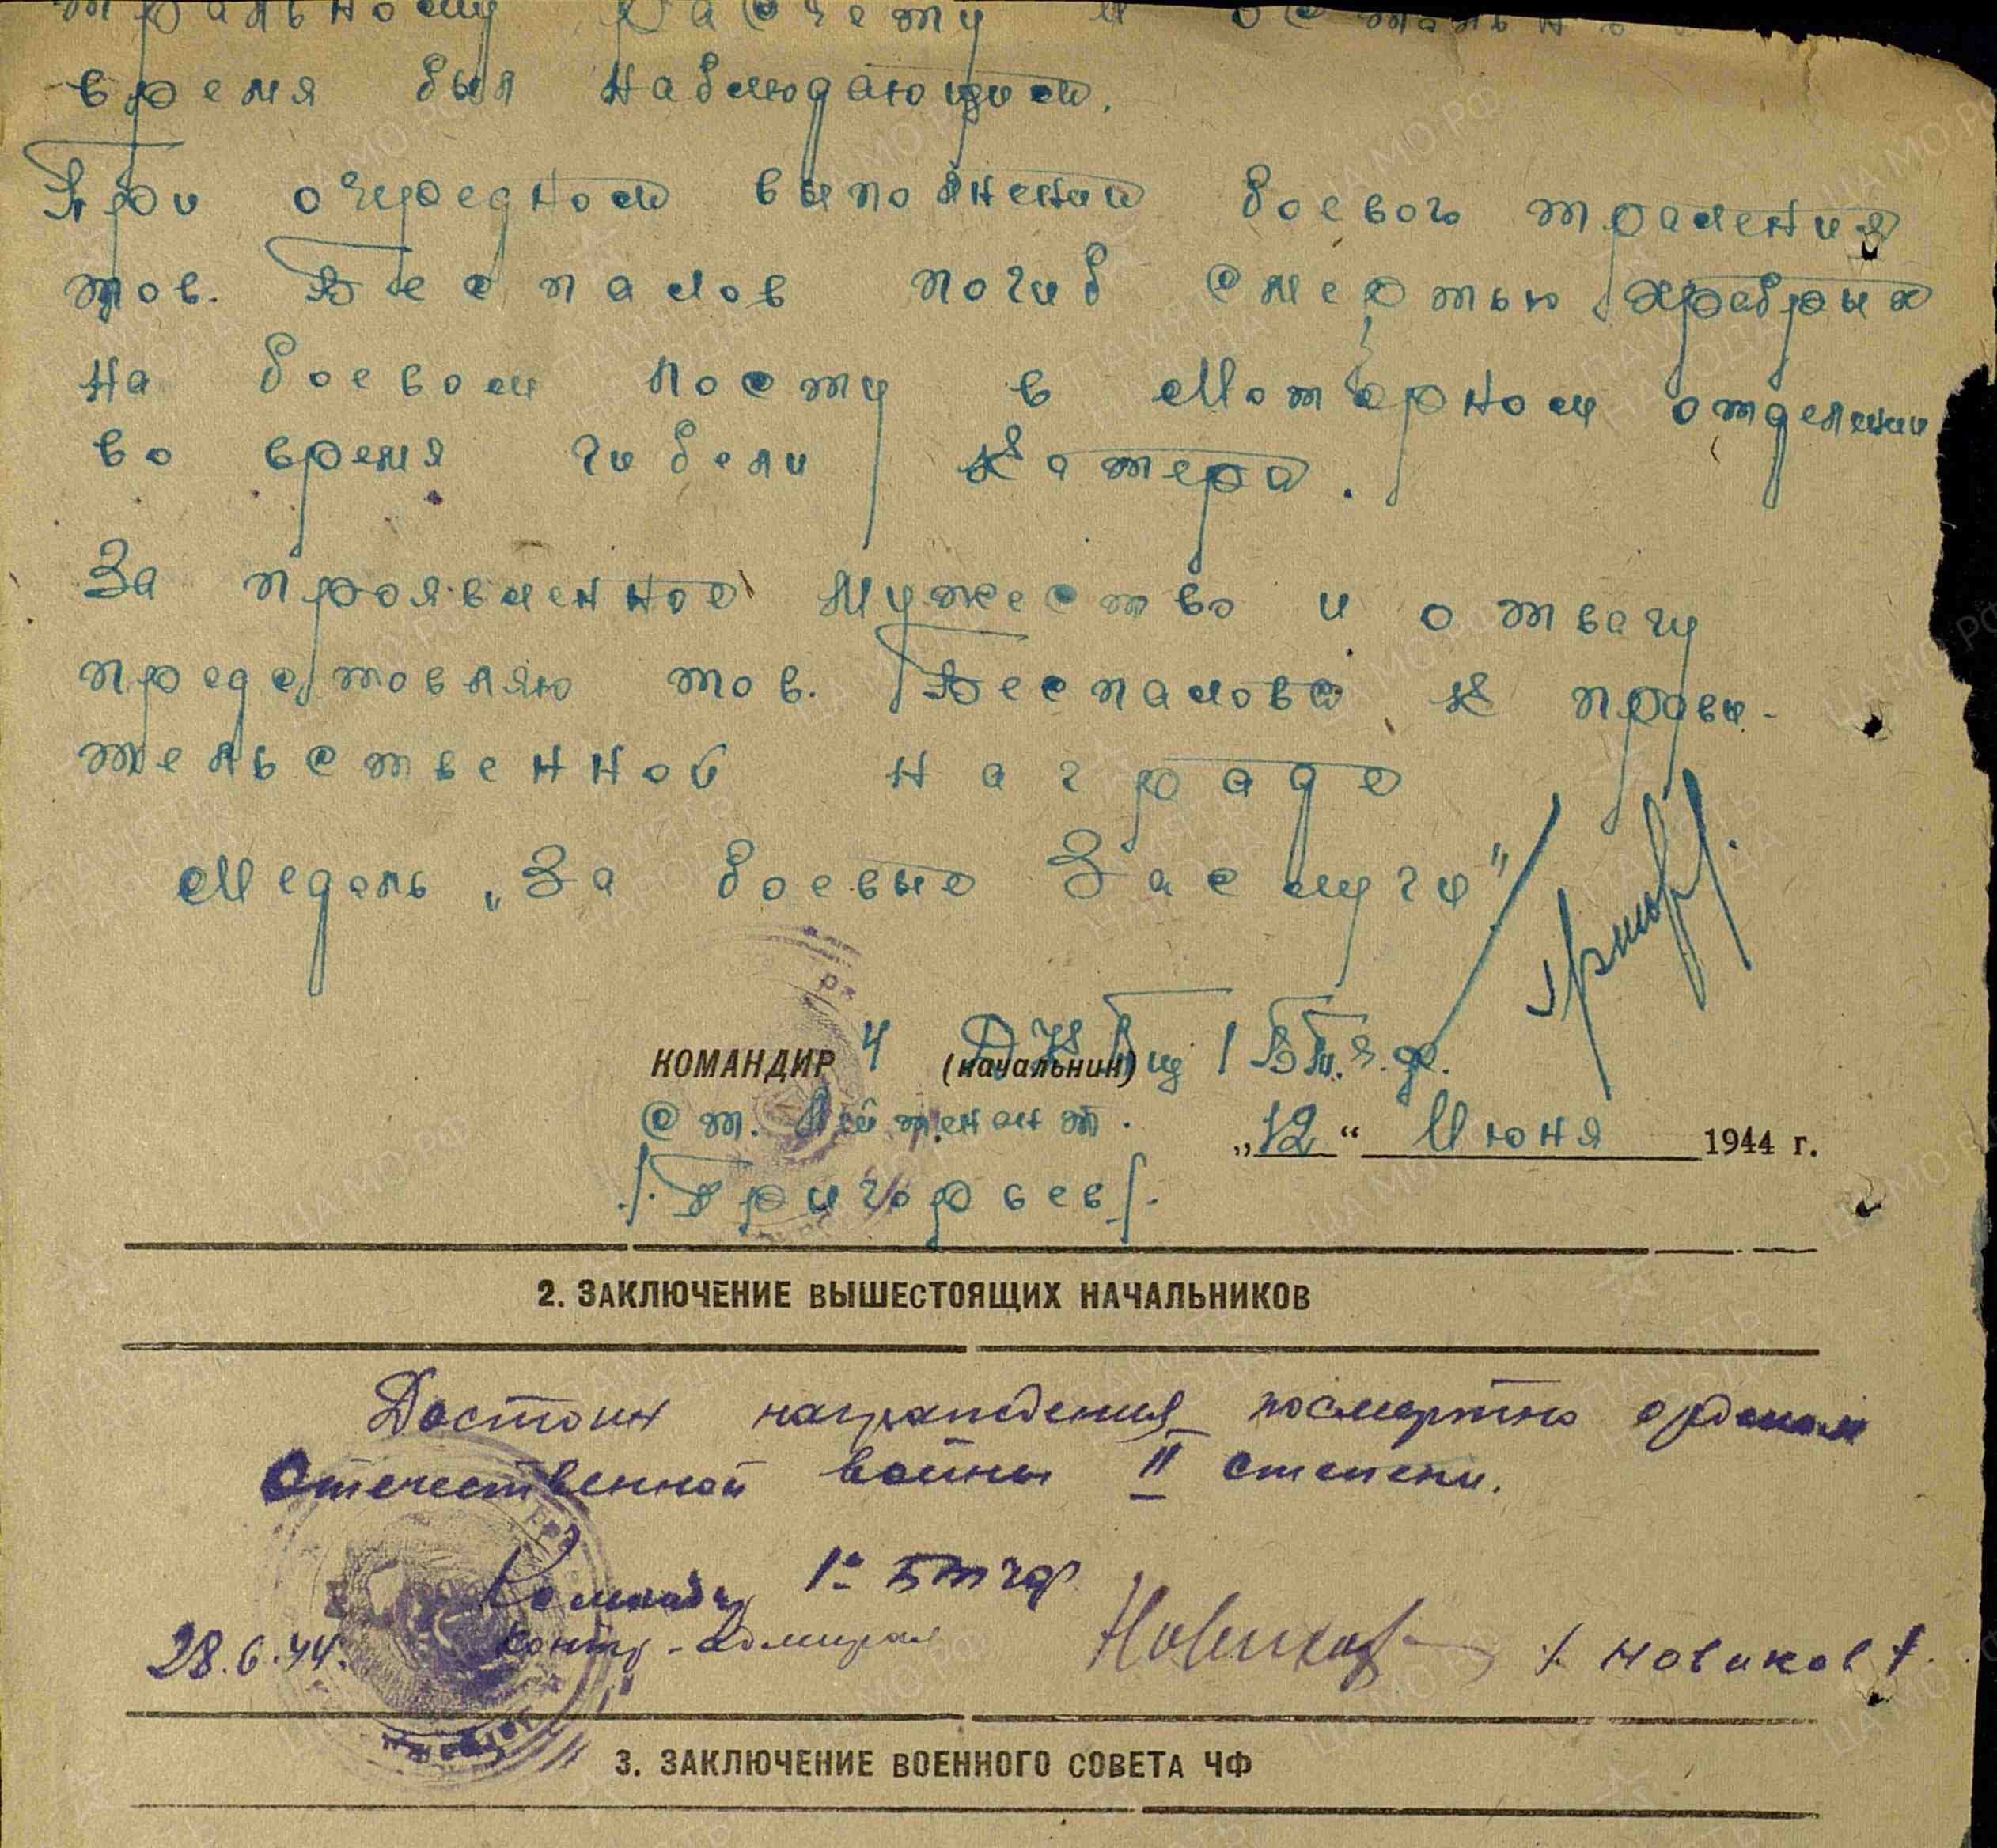 тральному расчету и остальное
время был наблюдающим.
При очередном выполнении боевого траления
тов. Беспалов погиб смертью храбрых
на боевом посту в моторном отделении
во время гибели катера.
За проявленное мужество и отвагу
представляю тов. Беспалова к прави-
тельственной награде
Медаль „За боевые Заслуги"
КОМАНДИР 4 (начальник) 1 БТ
ст. Лейтенант. „12“ Июня 1944 г.
/. Григорьев/.
2. ЗАКЛЮЧЕНИЕ ВЫШЕСТОЯЩИХ НАЧАЛЬНИКОВ
Достоин награждения посмертно орденом
Отечественной войны II степени.
Командир 1й БТЧФ
28.6.44. контр-адмирал Новиков /. Новиков /.
3. ЗАКЛЮЧЕНИЕ ВОЕННОГО СОВЕТА ЧФ